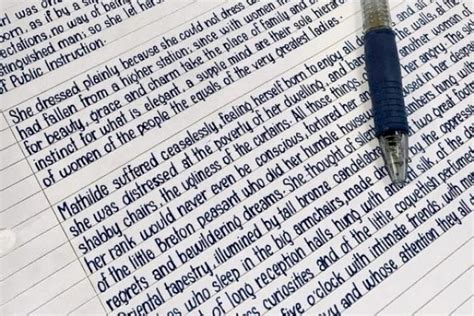 irl was
born, as if by a slip
pectations, no way of being
tinguished man; so she let h
of Public Instruction.
She dressed plainly because she could not dress
had fallen from a higher station; since with women
for beauty, grace and charm take the place of family and
instinct for what is elegant, a supple mind are their sole hierar
of women of the people the equals of the very greatest ladies.
Mathilde suffered ceaselessly, feeling herself born to enjoy all
she was distressed at the poverty of her dwelling, and
shabby chairs, the ugliness of the curtains. All those things
her rank would never even be conscious, tortured her angry. The
of the little Breton peasant who did her humble house in her
regrets and bewildering dreams. She thought of
Oriental tapestry, illumined by tall bronze candelabra two great
who sleep in the big armchairs, made
of long reception halls hung with silk, of the
curiosities and of the little coquettish
five o'clock with intimate friends, with
and whose attention they all